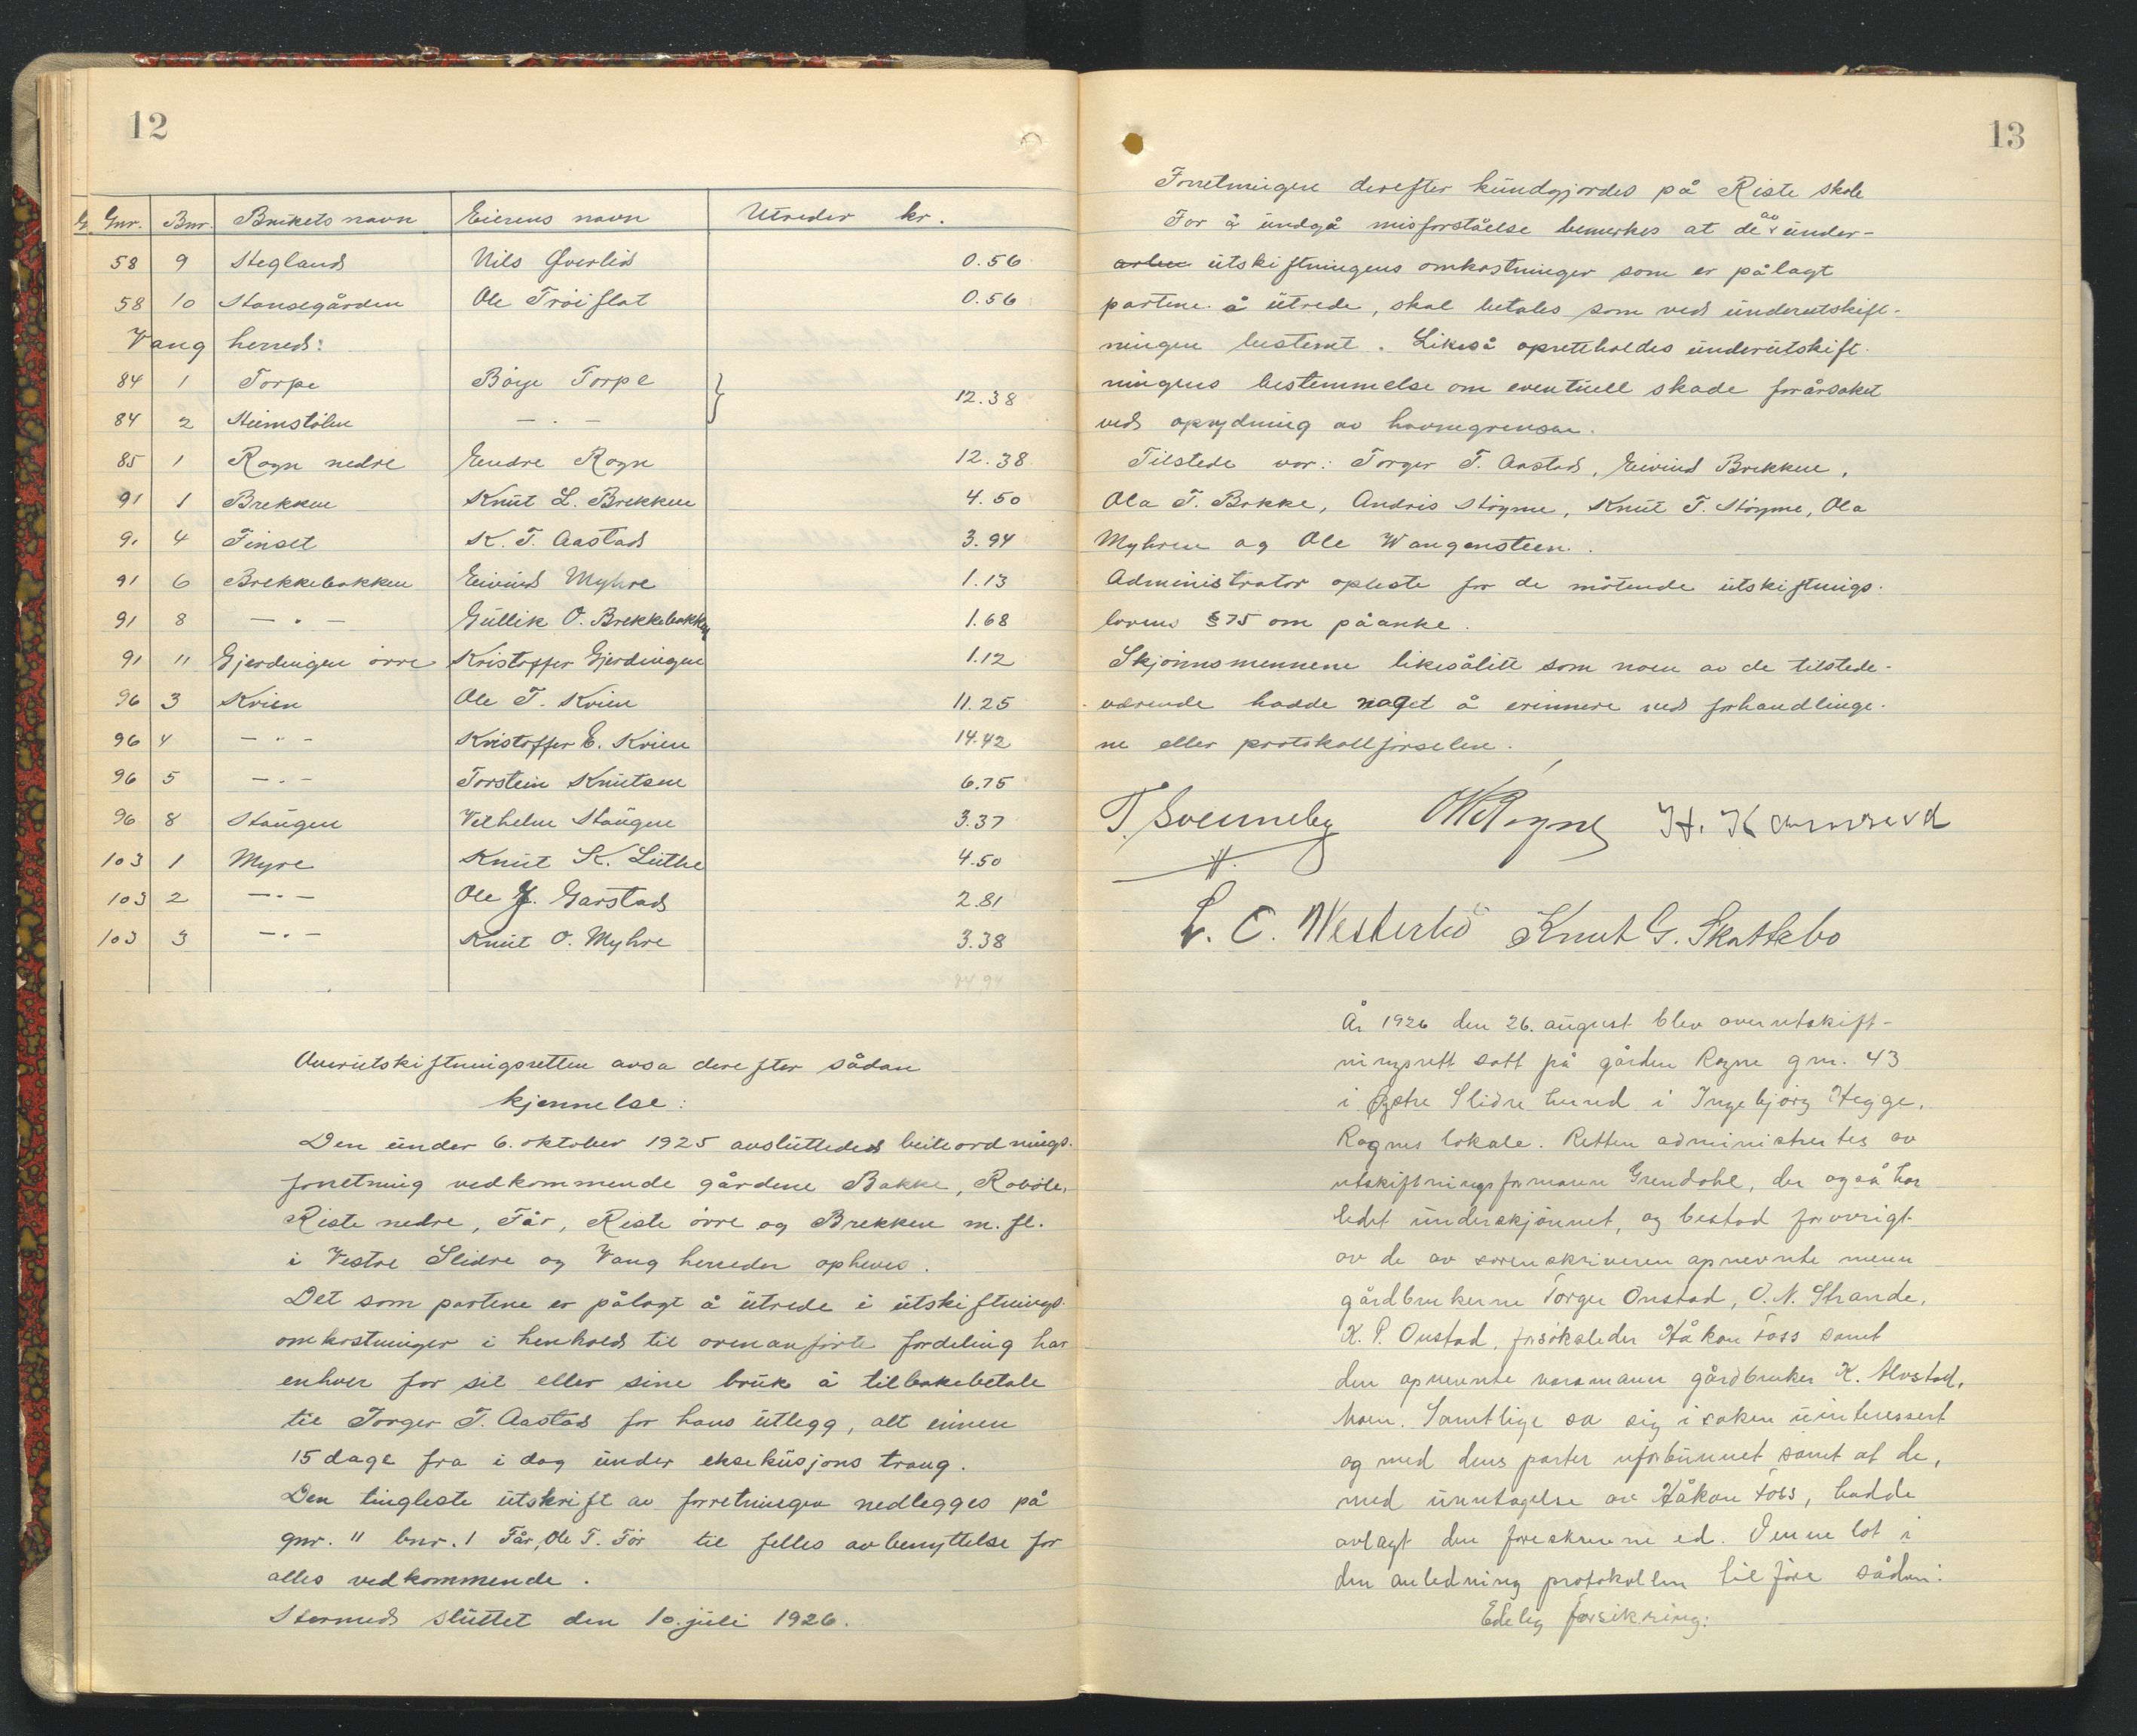 12
Gnr. Bnr. Brukets navn Eierens navn Utreder kr.
58 9 Hegland Nils Qverlid 0.56
58 10 Hansegården Ole Tröiflat 0.56
Vang herred:
84 1 Torpe Böye Torpe } 12.38
84 2 Heimstölen — . —
85 1 Rogn nedre Endre Rogn 12.38
91 1 Brekken Knut L. Brekken 4.50
91 4 Finset K. T. Aastad 3.94
91 6 Brekkebakken Eivind Myhre 1.13
91 8 — . — Gullik O. Brekkebakken 1.68
91 11 Gjerdingen övre Kristoffer Gjerdingen 1.12
96 3 Kvien Ole T. Kvien 11.25
96 4 — " — Kristoffer E. Kvien 14.42
96 5 — . — Torstein Knutsen 6.75
96 8 Haugen Vilhelm Haugen 3.37
103 1 Myre Knut K. Luthe 4.50
103 2 — . — Ole J. Garstad 2.81
103 3 — . — Knut O. Myhre 3.38
84.94
Overutskiftningsretten avsa derefter sådan
kjennelse:
Den under 6. oktober 1925 avsluttede beiteordnings-
forretning vedkommende gårdene Bakke, Roböle,
Riste nedre, Får, Riste övre og Brekken m. fl.
i Vestre Slidre og Vang herreder opheves.
Det som partene er pålagt å utrede i utskiftnings-
omkostninger i henhold til ovenanförte fordeling har
enhver for sit eller sine bruk å tilbakebetale
til Torger T. Aastad for hans utlegg, alt innen
15 dage fra i dag under eksekusjons trang.
Den tingleste utskrift av forretningen nedlegges på
gnr. 11 bnr. 1 Får, Ole T. För til felles avbenyttelse for
alles vedkommende.
Hermed sluttet den 10. juli 1926.
13
Forretningen derefter kundgjordes på Riste skole
For å undgå misforståelse bemerkes at de av under-
utskiftningens omkostninger som er pålagt
partene å utrede, skal betales som ved underutskift-
ningen bestemt. Likeså oprettholdes underutskift-
ningens bestemmelse om eventuell skade forårsaket
ved oprydning av havnegrensen.
Tilstede var: Torger T. Aastad, Eivind Brekken,
Ola T. Bakke, Andris Höyme, Knut T. Höyme, Ola
Myhren og Ole Wangensteen.
Administrator opleste for de mötende utskiftnings-
lovens § 75 om påanke.
Skjönnsmennene likesålitt som noen av de tilstede-
værende hadde noget å erinnere ved forhandlinge-
ne eller protokollförselen.
T. Svenneby OKRogne H. Kamrud
L. C. Westerbö Knut G. Skattebo
År 1926 den 26. august blev overutskift-
ningsrett satt på gården Rogne gnr. 43
i Östre Slidre herred i Ingebjörg Hegge,
Rognes lokale. Retten administrertes av
utskiftningsformann Grendahl, der også har
ledet underskjönnet, og bestod forövrigt
av de av sorenskriveren opnevnte menn
gårdbrukerne Torger Onstad, O. N. Strande,
K. P. Onstad, forsöksleder Håkon Foss samt
den opnevnte varamann gårdbruker K. Alvstad,
Moen. Samtlige sa sig i saken uinteressert
og med dens parter uforbunnet samt at de,
med unntagelse av Håkon Foss, hadde
avlagt den foreskrevne ed. Denne lot i
den anledning protokollen tilföre sådan:
Edelig forsikring: